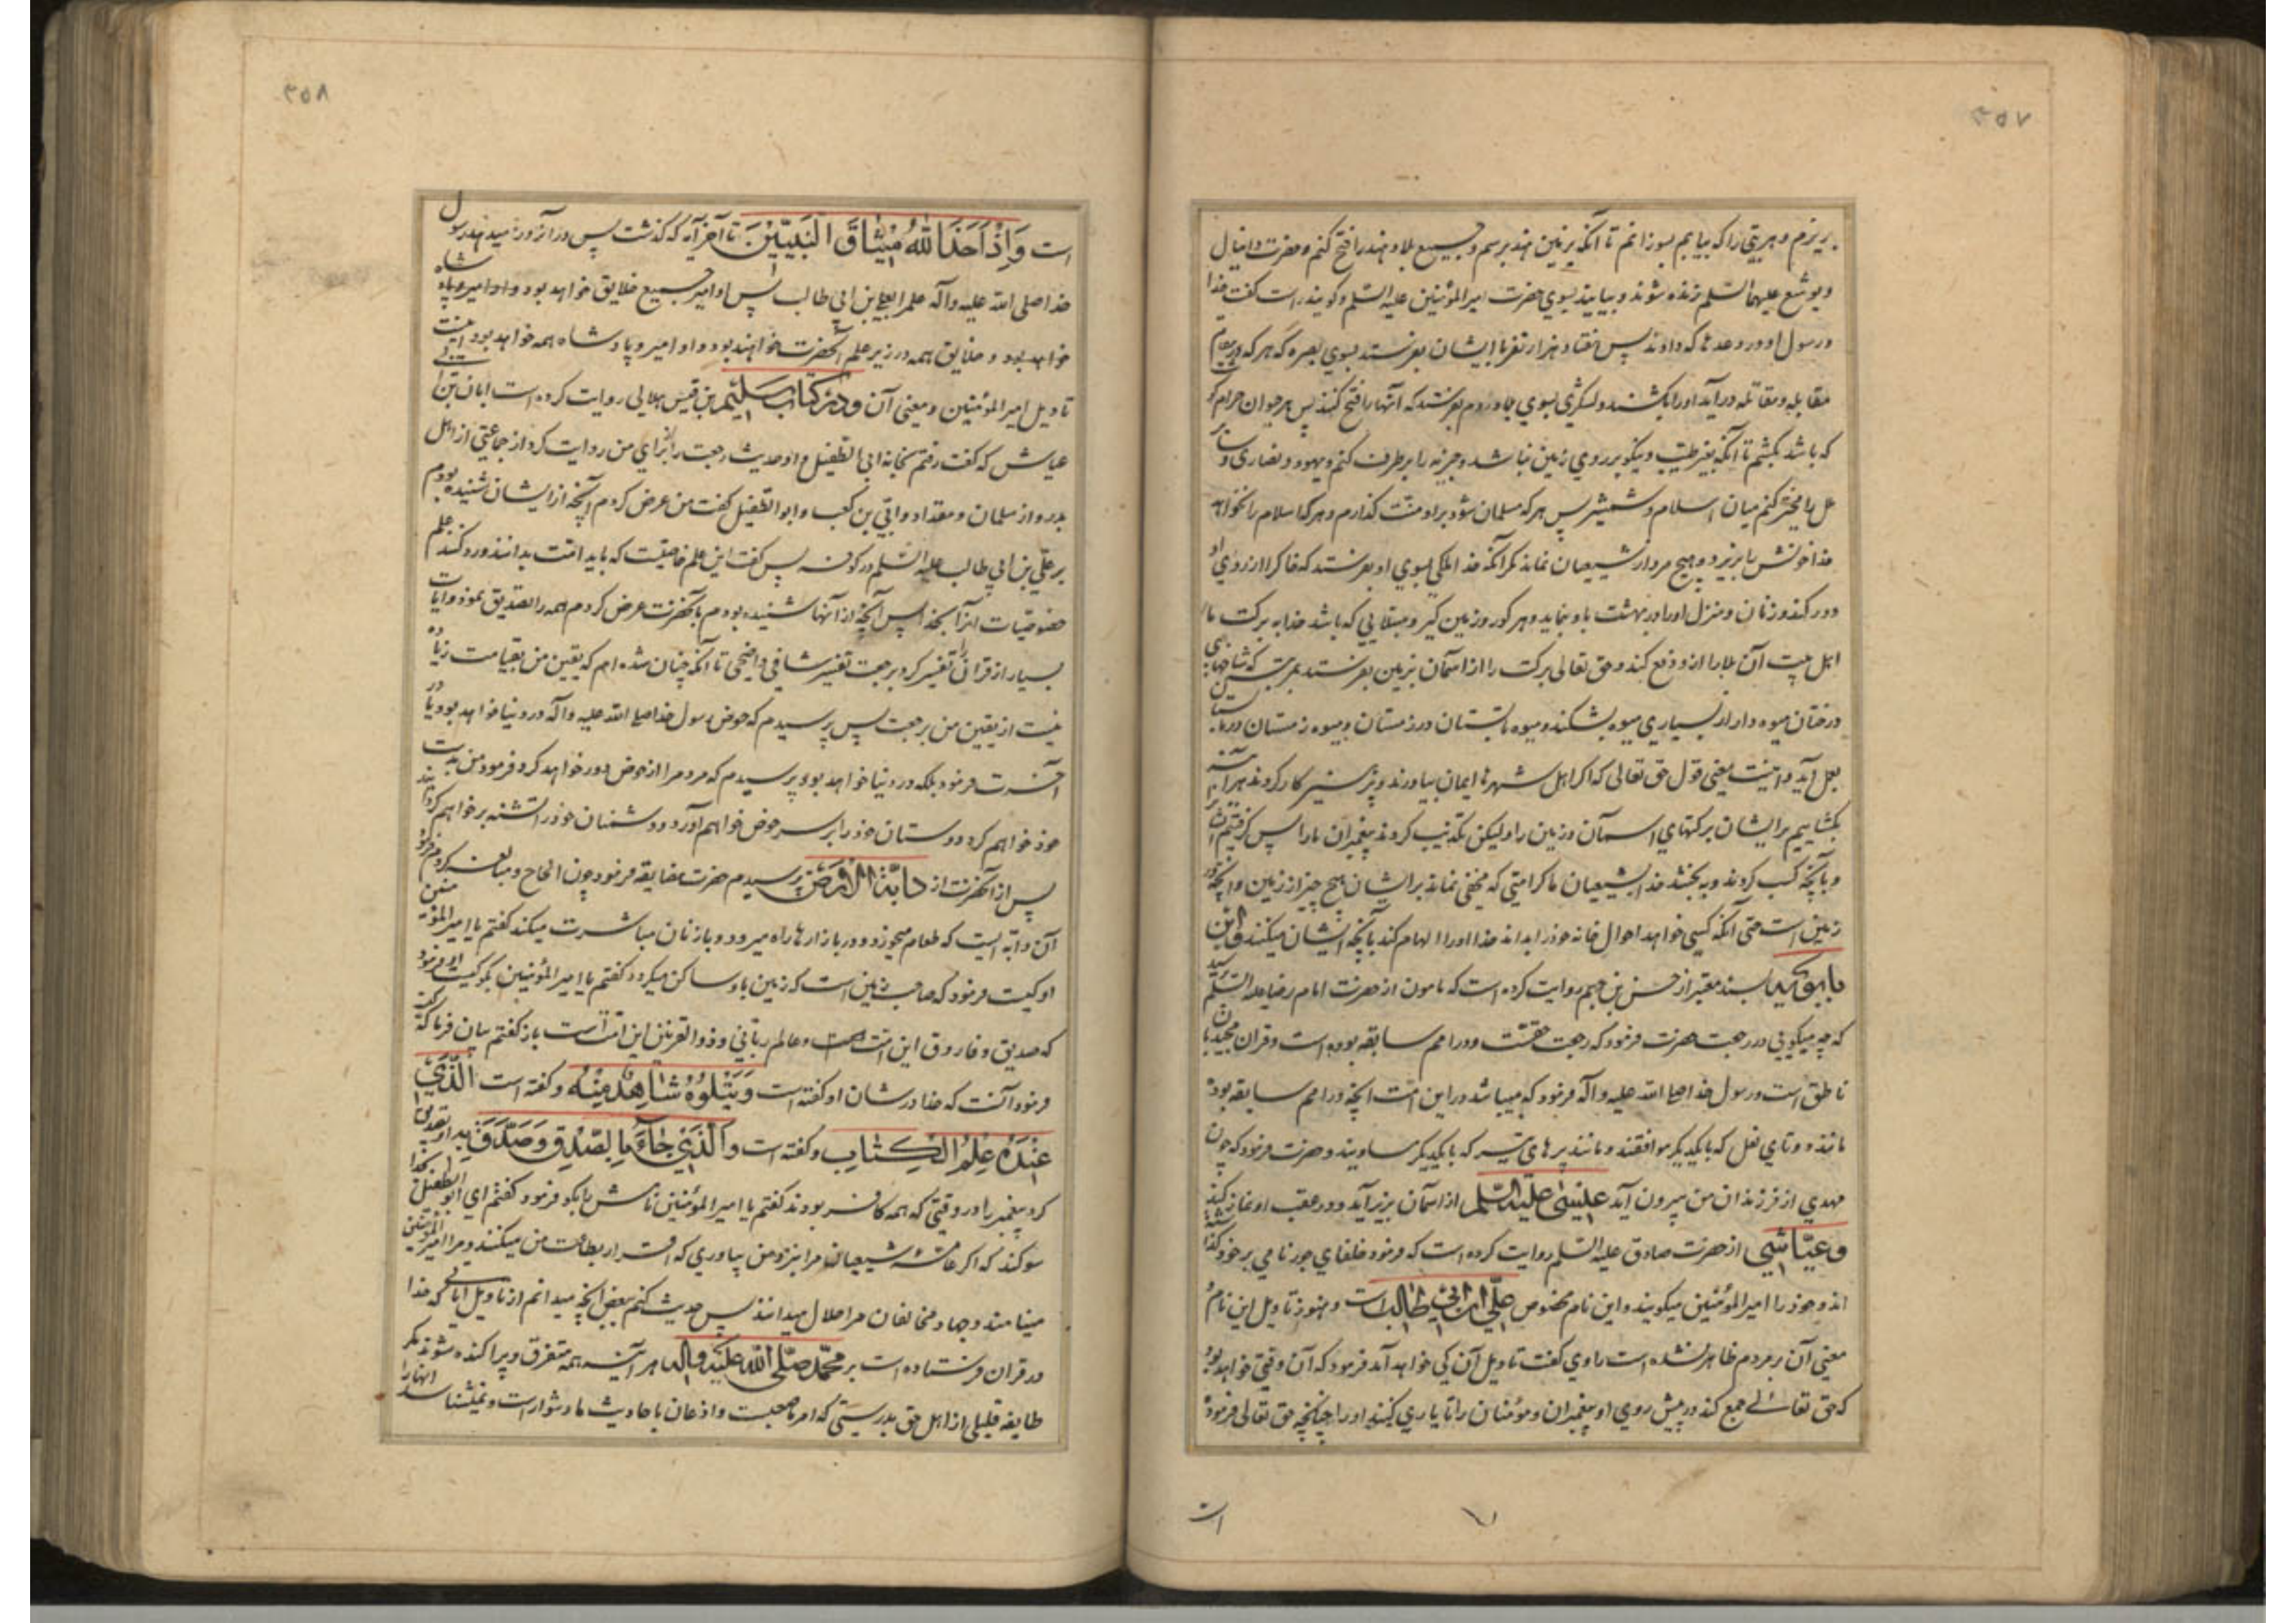 ۳۵۷
بریزم و هر بتی را که بیابم بسوزانم تا آنکه بزمین هند برسم و جمیع بلاد هند را فتح کنم و حضرت دانیال
و یوشع علیهما السّلم زنده شوند و بیایند بسوی حضرت امیر المؤمنین علیه السّلم و کویند راست کفت خدا
و رسول او در وعدها که دادند پس هفتاد هزار نفر با ایشان بفرستد بسوی بصره که هر که در مقام
مقابله و مقاتله در آید او را بکشند و لشکری بسوی بلاد روم بفرستد که آنها را فتح کنند پس هر حیوان حرام کوشت
که باشد بکشم تا آنکه بغیر طیّب و نیکو بر روی زمین نباشد و جزیه را برطرف کنم و یهود و نصاری و سایر
ملل را مخیّر کنم میان اسلام و شمشیر پس هر که مسلمان شود بر او منّت کذارم و هر که اسلام را نخواهد
خدا خونش را بریزد و هیچ مرد از شیعیان نماند مکر آنکه خدا ملکی بسوی او بفرستد که خاک را از روی او
دور کند و زنان و منزل او را در بهشت باو بنماید و هر کور و زمین کیر و مبتلایی که باشد خدا به برکت ما
اهل بیت آن بلا را از و دفع کند و حق تعالی برکت را از آسمان بزمین بفرستد بمرتبه که شاخهای
درختان میوه دار از بسیاری میوه بشکند و میوه تابستان در زمستان و میوه زمستان در تابستان
بعمل آید و اینست معنی قول حق تعالی که اکر اهل شهرها ایمان بیاورند و پرهیزکار کردند هر آینه
بکشاییم بر ایشان برکتهای آسمان و زمین را و لیکن تکذیب کردند پیغمبران ما را پس کرفتیم ایشان را
و بآنچه کسب کردند و به بخشد خدا بشیعیان ما کرامتی که مخفی نماند بر ایشان هیچ چیز از زمین و آنچه در
زمین است حتی آنکه کسی خواهد احوال خانه خود را بداند خدا او را الهام کند بآنچه ایشان میکنند و ابن
بابویه بسند معتبر از حسن بن جهم روایت کرده است که مامون از حضرت امام رضا علیه السّلم پرسید
که چه میکویی در رجعت حضرت فرمود که رجعت حقست و در امم سابقه بوده است و قران مجید بآن
ناطق است و رسول خدا صلی الله علیه و آله فرمود که میباشد در این امّت آنچه در امم سابقه بود
مانند دو تای نعل که با یکدیکر موافقند و مانند پرهای تیر که با یکدیکر مساویند و حضرت فرمود که چون
مهدی از فرزندان من بیرون آید عیسی علیه السّلم از آسمان بزیر آید و در عقب او نماز کند
و عیّاشی از حضرت صادق علیه السّلم روایت کرده است که فرمود خلفای جور نامی بر خود کذاشته
اند و خود را امیر المؤمنین میکویند و این نام مخصوص علی ابن ابی طالب است و هنوز تاویل این نام و
معنی آن بر مردم ظاهر نشده است راوی کفت تاویل آن کی خواهد آمد فرمود که آن وقتی خواهد بود
که حق تعالی جمع کند در پیش روی او پیغمبران و مؤمنان را تا یاری کنند او را چنانچه حق تعالی فرموده
است
۳۵۸
است وَاِذْ اَخَذَ اللهُ مِیثَاقَ النَّبِیِّینَ تا آخر آیه که کذشت پس در آنروز میدهد رسول
خدا صلی الله علیه و آله علم را بعلی بن ابی طالب پس او امیر جمیع خلایق خواهد بود و او امیر و پادشاه
خواهد بود و خلایق همه در زیر علم آنحضرت خواهند بود و او امیر و پادشاه همه خواهد بود اینست
تاویل امیر المؤمنین و معنی آن و در کتاب سلیم بن قیس هلالی روایت کرده است ابان بن ابی
عیاش که کفت رفتم بخانه ابی الطفیل و او حدیث رجعت را برای من روایت کرد از جماعتی از اهل
بدر و از سلمان و مقداد و ابّی بن کعب و ابو الطفیل کفت من عرض کردم آنچه از ایشان شنیده بودم
بر علی بن ابی طالب علیه السّلم در کوفه پس کفت این علم خاصیست که باید امّت بدانند و رد کنند علم
خصوصیات آنرا بخدا پس آنچه از آنها شنیده بودم بآنحضرت عرض کردم همه را تصدیق نمود و آیات
بسیار از قران را تفسیر کرد برجعت تفسیر شافی واضحی تا آنکه چنان شده ام که یقین من بقیامت زیاده
نیست از یقین من برجعت پس پرسیدم که حوض رسول خدا صلی الله علیه و آله در دنیا خواهد بود یا در
آخرت فرمود بلکه در دنیا خواهد بود پرسیدم که مردم را از حوض دور خواهد کرد فرمود من بدست
خود خواهم کرد دوستان خود را بر سر حوض خواهم آورد و دشمنان خود را تشنه بر خواهم کردانید
پس از آنحضرت از دابّة الارض پرسیدم حضرت مضایقه فرمود چون الحاح و مبالغه کردم فرمود
آن دابّه ایست که طعام میخورد و در بازارها راه میرود و با زنان مباشرت میکند کفتم یا امیر المؤمنین
او کیست فرمود که صاحب زمین است که زمین باو ساکن میکردد کفتم یا امیر المؤمنین بکو کیست او فرمود
که صدیق و فاروق این امّت است و عالم ربّانی و ذو القرنین این امّت است باز کفتم بیان فرما که کیست
فرمود آنست که خدا در شان او کفته است وَیَتْلُوهُ شَاهِدٌ مِنْهُ و کفته است الَّذِی
عِنْدَهُ عِلْمُ الْکِتَابِ و کفته است وَالَّذِی جَآءَ بِالصِّدْقِ وَصَدَّقَ بِهِ او تصدیق
کرد پیغمبر را در وقتی که همه کافر بودند کفتم یا امیر المؤمنین نامش را بکو فرمود کفتم ای ابو الطفیل بخدا
سوکند که اکر عامّه شیعیان مرا بنزد من بیاوری که اقرار بطاعت من میکنند و مرا امیر المؤمنین
مینامند و جهاد مخالفان مرا حلال میدانند پس حدیث کنم ببعض آنچه میدانم از تاویل آیاتی که خدا
در قران فرستاده است بر محمّد صلّی الله علیه و آله هر آینه همه متفرق و پراکنده شوند مکر
طایفه قلیلی از اهل حق بدرستی که امر ما صعبست و اذعان باحادیث ما دشوار است و نمیشناسد آنها را